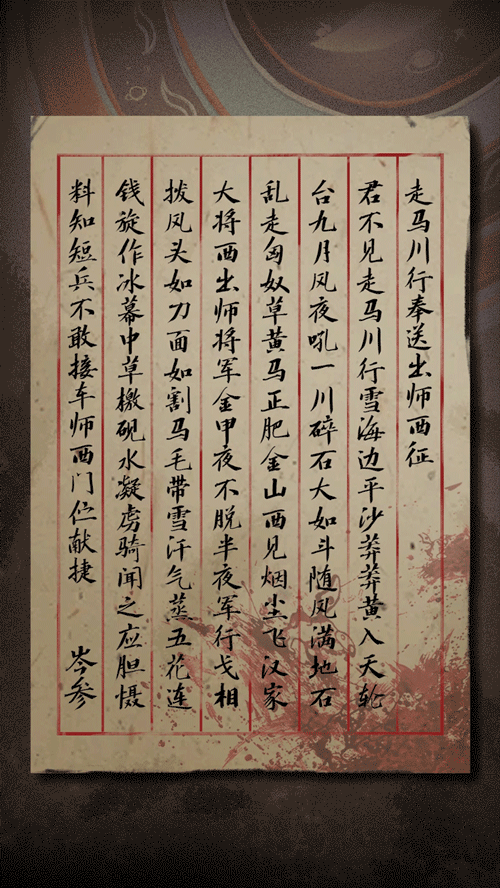 走马川行奉送出师西征
君不见走马川行雪海边平沙莽莽黄入天轮
台九月风夜吼一川碎石大如斗随风满地石
乱走匈奴草黄马正肥金山西见烟尘飞汉家
大将西出师将军金甲夜不脱半夜军行戈相
拨风头如刀面如割马毛带雪汗气蒸五花连
钱旋作冰幕中草檄砚水凝虏骑闻之应胆慑
料知短兵不敢接车师西门伫献捷
岑参